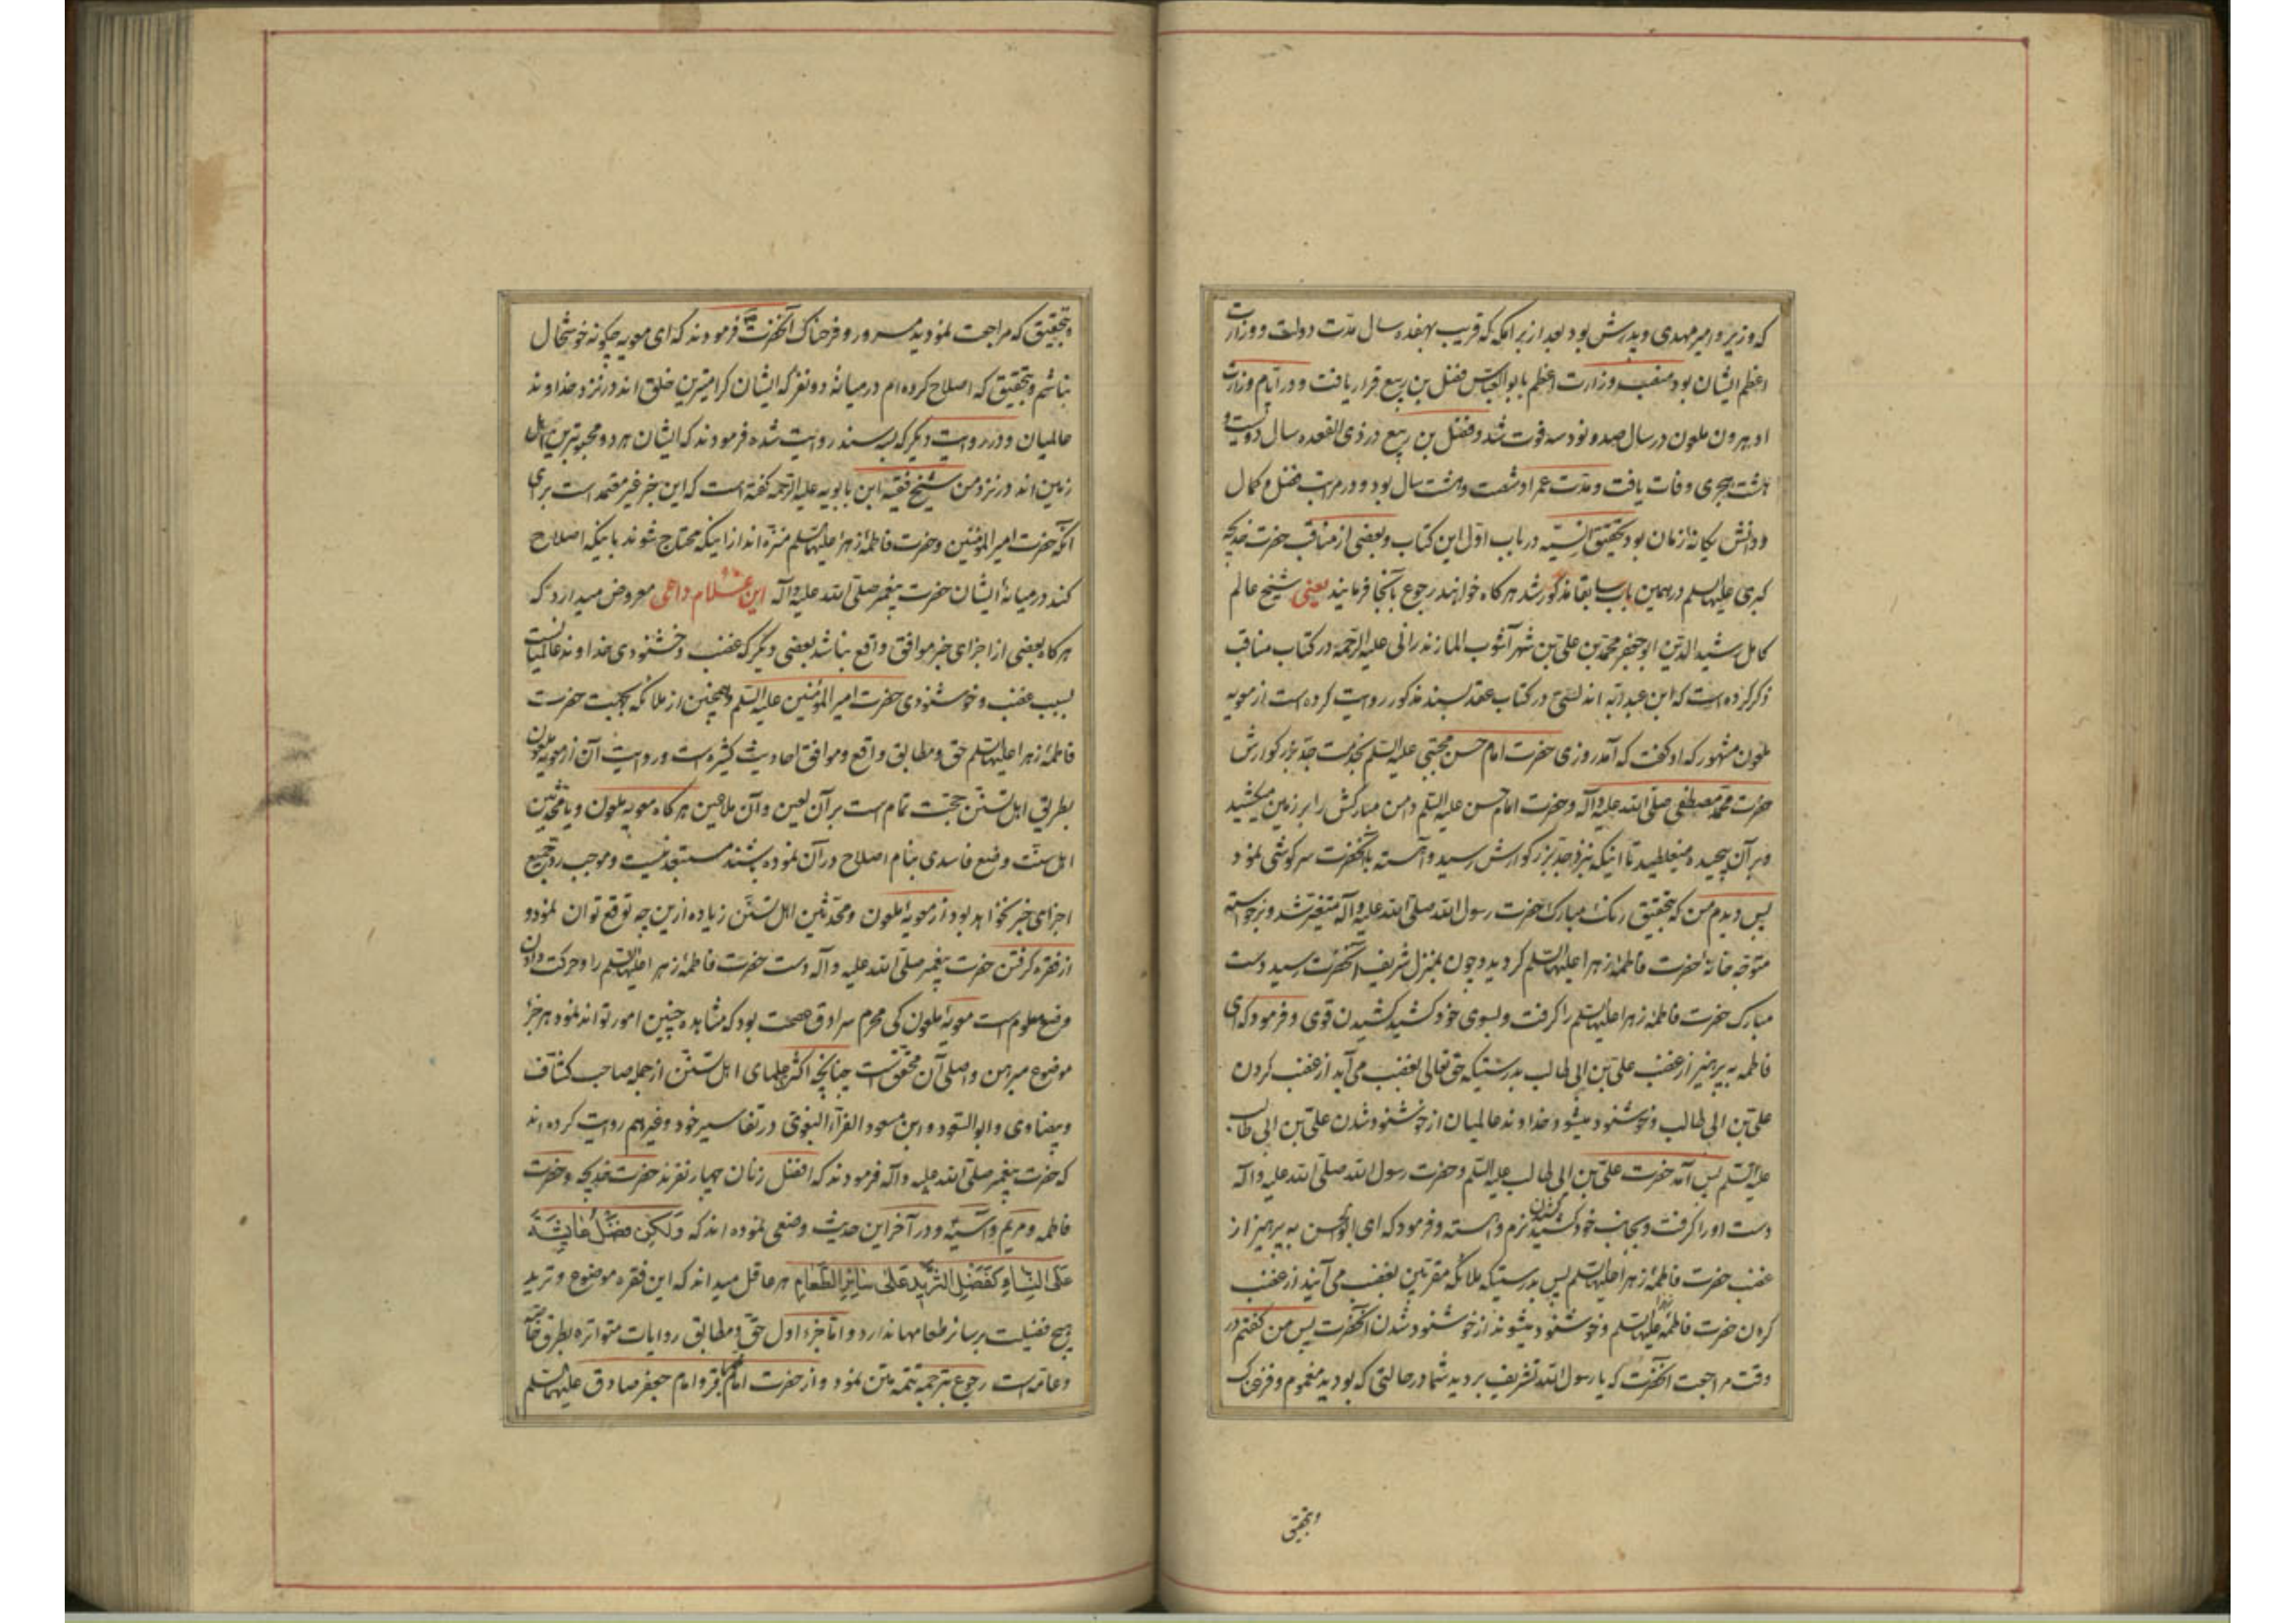 که وزیر و امیر مهدی و پدرش بود بعد از برامکه که قریب بهفده سال مدّت دولت و وزارت
اعظم ایشان بود منصب وزارت اعظم بابو العباس فضل بن ربیع قرار یافت و در ایّام وزارت
او هرون ملعون در سال صد و نود و سه فوت شد و فضل بن ربیع در ذی القعده سال دویست و
هشت هجری وفات یافت و مدّت عمر او شصت و هشت سال بود و در مراتب فضل و کمال
و دانش یکانهٔ زمان بود بتحقیق در باب اوّل این کتاب و بعضی از مناقب حضرت خدیجه
کبری علیها السلم در همین باب سابقا مذکور شد هر کاه خواهند رجوع بآنجا فرمایند یعنی شیخ عالم
کامل رشید الدّین ابو جعفر محمّد بن علی بن شهر آشوب المازندرانی علیه الرّحمة در کتاب مناقب
ذکر کرده است که ابن عبد ربّه اندلسی در کتاب عقد بسند مذکور روایت کرده است از معویه
ملعون مشهور که او کفت که آمد روزی حضرت امام حسن مجتبی علیه السّلم بخدمت جدّ بزرکوارش
حضرت محمّد مصطفی صلّی الله علیه وآله و حضرت امام حسن علیه السّلم دامن مبارکش را بر زمین میکشید
و بر آن پیچیده میغلطید تا اینکه بنزد جدّ بزرکوارش رسید و آهسته بآنحضرت سرکوشی نمود
پس دیدم من که بتحقیق رنک مبارک حضرت رسول الله صلّی الله علیه وآله متغیّر شد و برخواسته
متوجّه خانهٔ حضرت فاطمهٔ زهرا علیها السّلم کردید و چون بمنزل شریف آنحضرت رسید دست
مبارک حضرت فاطمهٔ زهرا علیها السّلم را کرفت و بسوی خود کشید کشیدن قوی و فرمود که ای
فاطمه بپرهیز از غضب علی بن ابی طالب بدرستیکه حق تعالی بغضب می آید از غضب کردن
علی بن ابی طالب و خوشنود میشود خداوند عالمیان از خوشنود شدن علی بن ابی طالب
علیه السّلم پس آمد حضرت علی بن ابی طالب علیه السّلم و حضرت رسول الله صلّی الله علیه وآله
دست او را کرفت و بجانب خود کشید کشیدن نرم و آهسته و فرمود که ای ابو الحسن بپرهیز از
غضب حضرت فاطمهٔ زهرا علیها السّلم پس بدرستیکه ملائکه مقرّبین بغضب می آیند از غضب
کردن حضرت فاطمهٔ زهرا علیها السّلم و خوشنود میشوند از خوشنود شدن آنحضرت پس من کفتم در
وقت مراجعت آنحضرت که یا رسول الله تشریف بردید شما در حالتی که بودید مغموم و
و بتحقیق
و بتحقیق که مراجعت نمودید مسرور و فرحناک آنحضرت فرمودند که ای معویه چکونه خوشحال
نباشم و بتحقیق که اصلاح کرده ام در میانهٔ دو نفر که ایشان کرامیترین خلق اند در نزد خداوند
عالمیان و در روایت دیکر که بسند روایت شده فرمودند که ایشان هر دو محبوبترین اهل
زمین اند در نزد من شیخ فقیه ابن بابویه علیه الرّحمة کفته است که این خبر غیر معتمد است برای
آنکه حضرت امیر المؤمنین و حضرت فاطمهٔ زهرا علیهما السّلم منزّه اند از اینکه محتاج شوند باینکه اصلاح
کند در میانهٔ ایشان حضرت پیغمبر صلّی الله علیه وآله این داعی معروض میدارد که
هر کاه بعضی از اجزای خبر موافق واقع نباشد بعضی دیکر که غضب و خشنودی خداوند عالمیانست
بسبب غضب و خوشنودی حضرت امیر المؤمنین علیه السّلم و همچنین از ملائکه بجهت حضرت
فاطمهٔ زهرا علیها السّلم حق و مطابق واقع و موافق احادیث کثیره است و روایت آن از معویه ملعون
بطریق اهل تسنّن حجّت تمام است بر آن لعین و آن ملاعین هر کاه معویه ملعون و یا محدّثین
اهل سنّت وضع فاسدی بنام اصلاح در آن نموده باشند مستبعد نیست و موجب ردّ جمیع
اجزای خبر نخواهد بود از معویهٔ ملعون و محدّثین اهل تسنّن زیاده ازین چه توقع توان نمود و
از فقره کرفتن حضرت پیغمبر صلّی الله علیه وآله دست حضرت فاطمهٔ زهرا علیها السّلم را و حرکت دادن
وضع معلوم است معویهٔ ملعون کی محرم سرادق عصمت بود که مشاهده چنین امور تواند نمود هر جزء
موضوع مبرهن و اصلی آن محقّق است چنانچه اکثر علمای اهل تسنّن از جمله صاحب کشّاف
و بیضاوی و ابو السّعود و ابن مسعود الفرّاء البغوی در تفاسیر خود و غیر هم روایت کرده اند
که حضرت پیغمبر صلّی الله علیه وآله فرمودند که افضل زنان چهار نفرند حضرت خدیجه و حضرت
فاطمه و مریم و آسیّه و در آخر این حدیث وضعی نموده اند که وَلکِن فَضلُ عَایِشَة
عَلَی النِّسَاءِ کَفَضلِ الثَّرِیدِ عَلی سَائِرِ الطَّعَامِ هر عاقل میداند که این فقره موضوع و ترید
هیچ فضیلت بر سائر طعامها ندارد و امّا جزء اول حقّ و مطابق روایات متواتره بطرق خاصّه
و عامّه است رجوع بترجمه تتمه متن نمود و از حضرت امام محمّد باقر و امام جعفر صادق علیهما السّلم